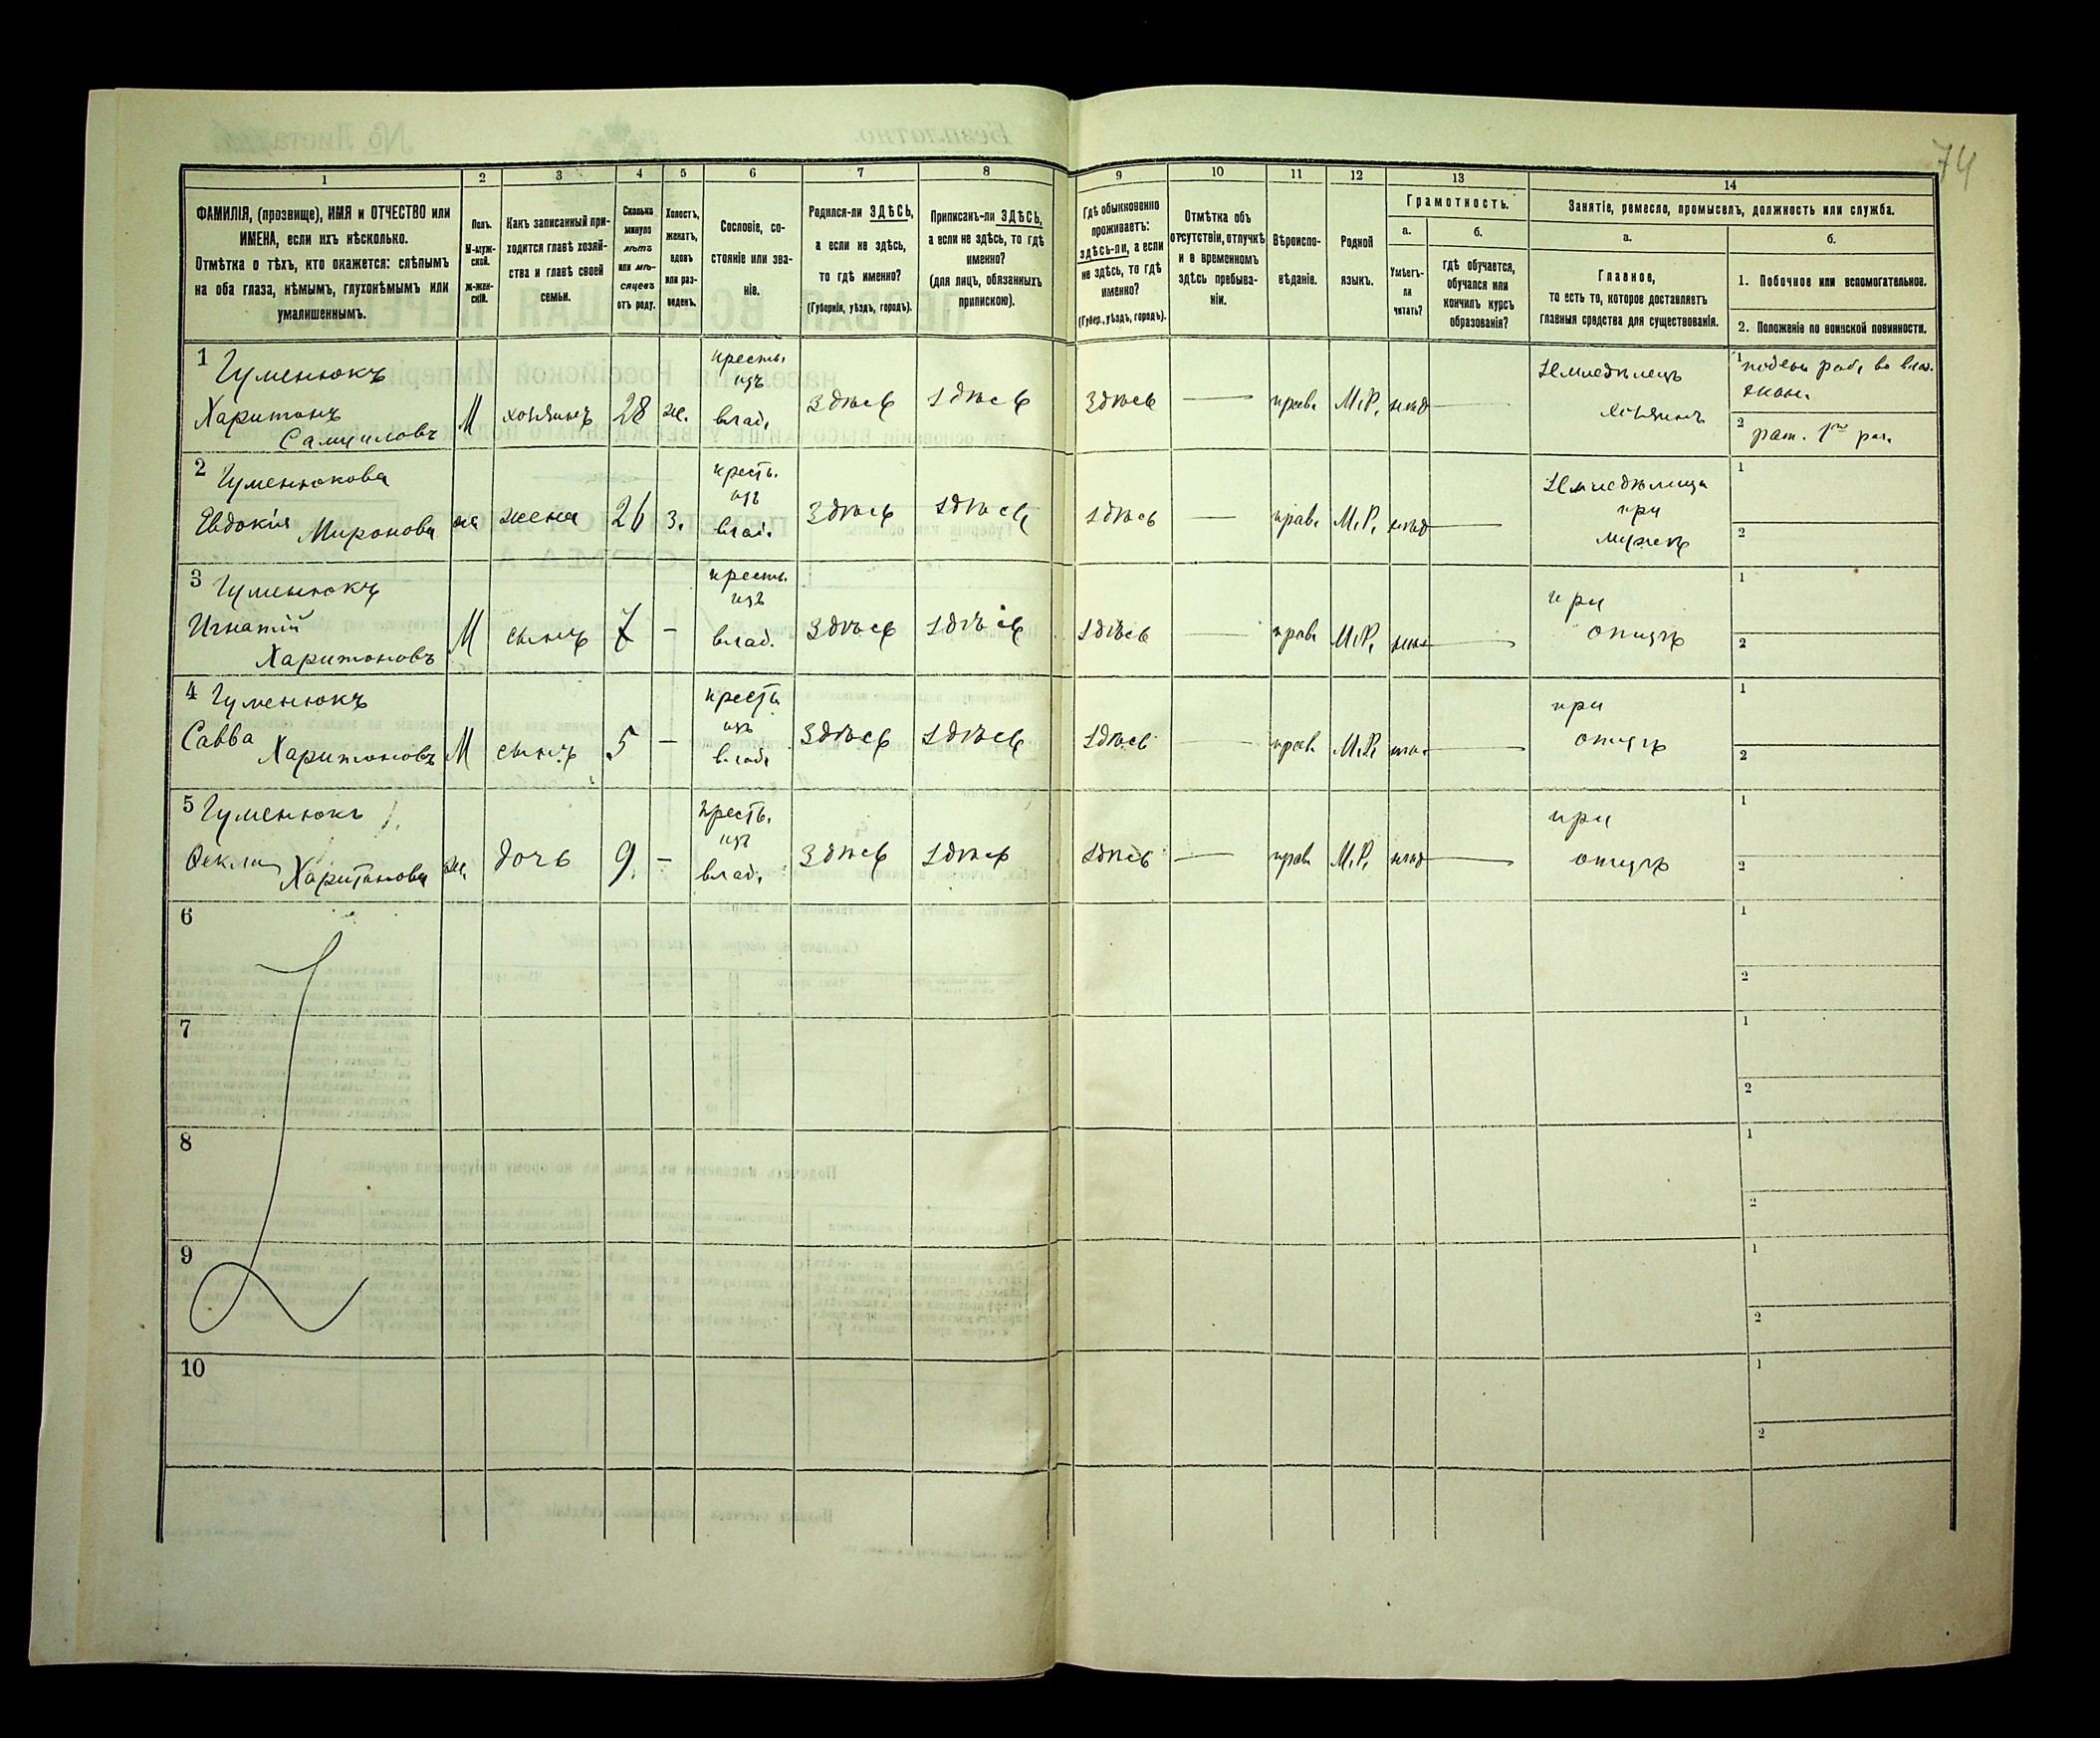 74
1
2
3
4
5
6
7
8
9
10
11
12
13
14
ФАМИЛІЯ, (прозвище), ИМЯ и ОТЧЕСТВО или
ИМЕНА, если ихъ нѣсколько.
Отмѣтка о тѣхъ, кто окажется: слѣпымъ
на оба глаза, нѣмымъ, глухонѣмымъ или
умалишеннымъ.
Полъ.
М-муж-
ской.
Ж-жен-
скій.
Какъ записанный при-
ходится главѣ хозяй-
ства и главѣ своей
семьи.
Сколько
минуло
лѣтъ
или мѣ-
сяцевъ
отъ роду.
Холостъ,
женатъ,
вдовъ
или раз-
веденъ.
Сословіе, со-
стояніе или зва-
ніе.
Родился-ли ЗДѢСЬ,
а если не здѣсь,
то гдѣ именно?
(Губернія, уѣздъ, городъ).
Приписанъ-ли ЗДѢСЬ,
а если не здѣсь, то гдѣ
именно?
(для лицъ, обязанныхъ
припискою).
Гдѣ обыкновенно
проживаетъ:
здѣсь-ли, а если
не здѣсь, то гдѣ
именно?
(Губер., уѣздъ, городъ).
Отмѣтка объ
отсутствіи, отлучкѣ
и о временномъ
здѣсь пребыва-
ніи.
Вѣроиспо-
вѣданіе.
Родной
языкъ.
Грамотность.
а.
Умѣетъ-
ли
читать?
б.
гдѣ обучается,
обучался или
кончилъ курсъ
образованія?
Занятіе, ремесло, промыселъ, должность или служба.
а.
Главное,
то есть то, которое доставляетъ
главныя средства для существованія.
б.
1. Побочное или вспомогательное.
2. Положеніе по воинской повинности.
1 Гуменюкъ
Харитонъ
Самуиловъ
М
хозяинъ
28
ж.
крестьн.
изъ
влад.
Здѣсь
Здѣсь
Здѣсь
—
прав.
М.Р.
нѣтъ
—
Земледѣлецъ
хозяинъ
1
2 рат. 1го раз.
2 Гуменюкова
Евдокія Миронова
ж
жена
26
з.
крест.
изъ
влад.
Здѣсь
Здѣсь
Здѣсь
—
прав.
М.Р.
нѣтъ
—
Земледѣлица
при
мужѣ
1
2
3 Гуменюкъ
Игнатій
Харитоновъ
М
сынъ
7
-
крестьн.
изъ
влад.
Здѣсь
Здѣсь
Здѣсь
—
прав.
М.Р.
нѣтъ
—
при
отцѣ
1
2
4 Гуменюкъ
Савва Харитоновъ
М
сынъ
5
-
крест.
изъ
влад.
Здѣсь
Здѣсь
Здѣсь
—
прав.
М.Р.
нѣтъ
—
при
отцѣ
1
2
5 Гуменюкъ
Фекла Харитонова
ж.
дочь
9.
-
крест.
изъ
влад.
Здѣсь
Здѣсь
Здѣсь
—
прав.
М.Р.
нѣтъ
—
при
отцѣ
1
2
6
1
2
7
1
2
8
1
2
9
1
2
10
1
2